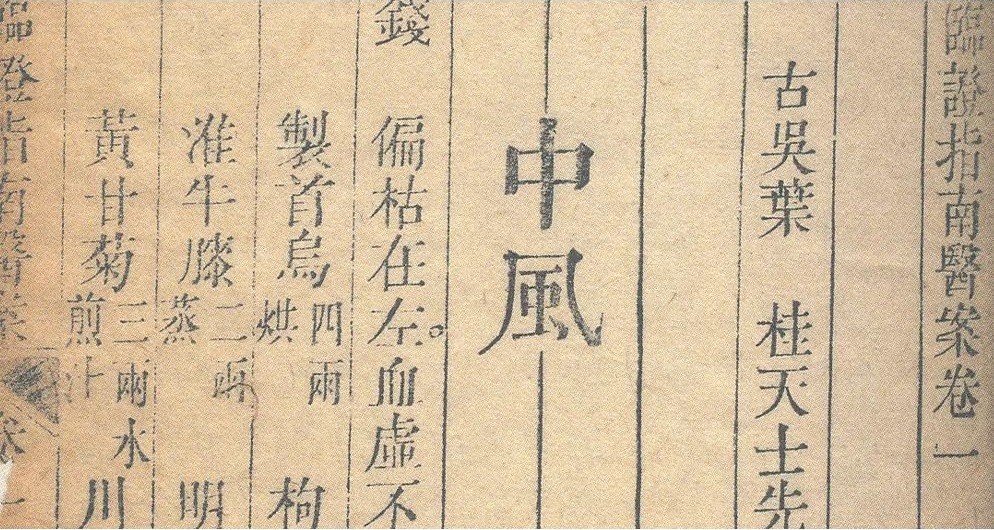 臨證指南醫案卷一
古吳葉 桂天士先
中風
錢
偏枯在左。血虛不
製首烏四兩烘 枸
准牛膝二兩蒸 明
黃甘菊三兩水煎汁 川
臨證指南醫案 卷一